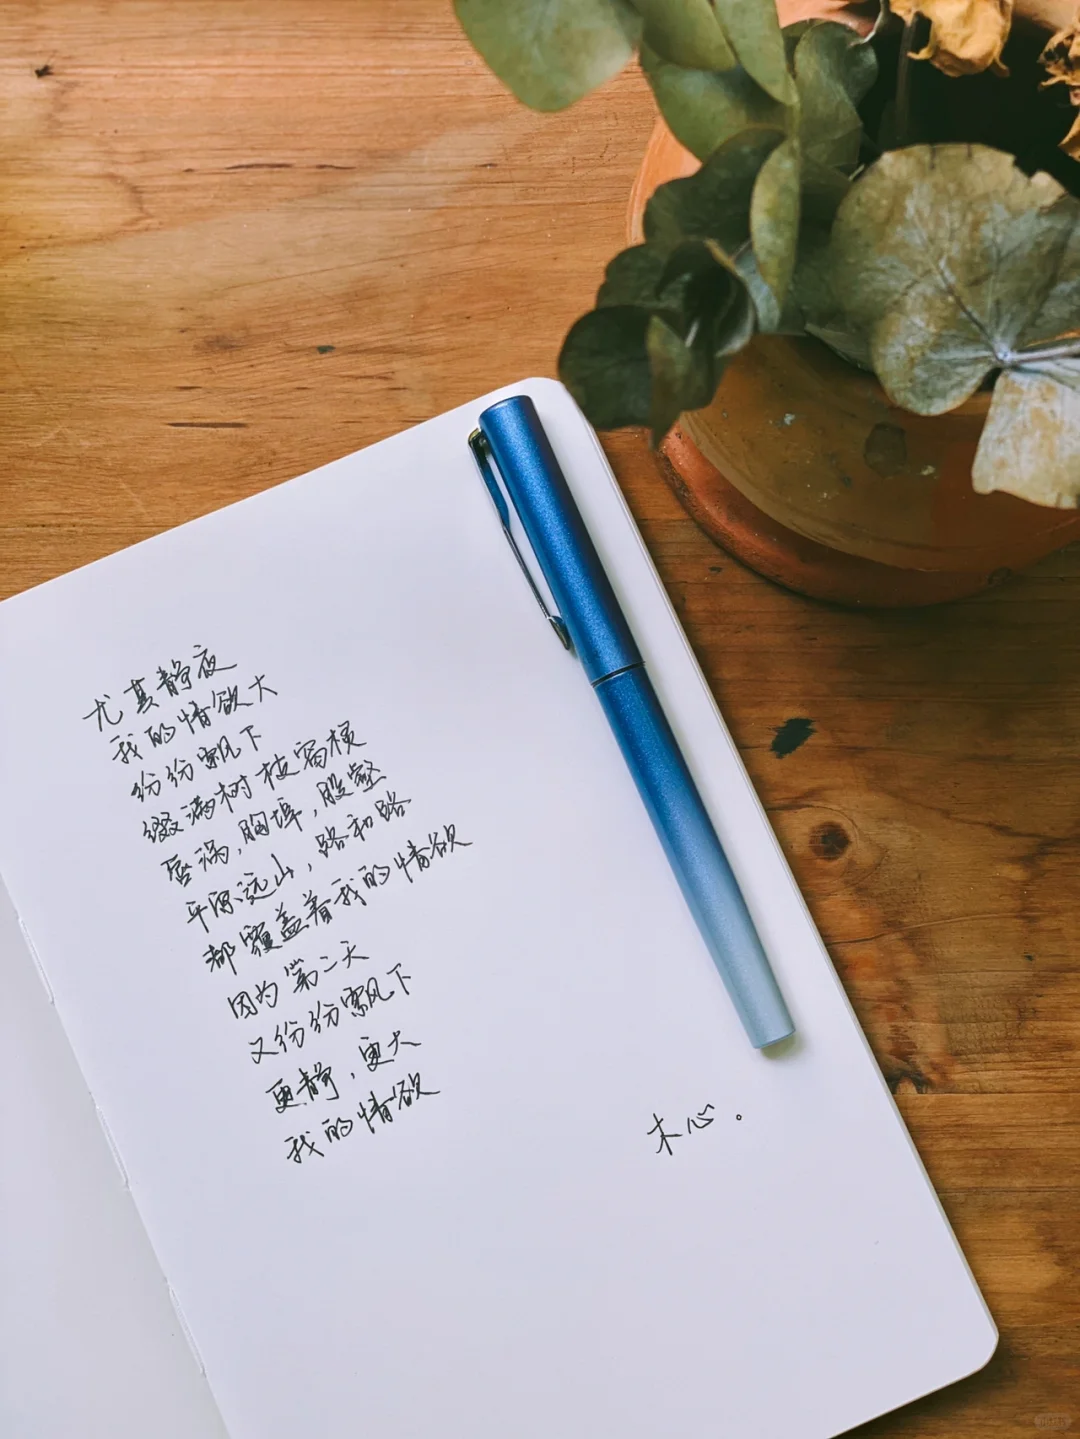 尤其静夜
我的情欲大
纷纷飘下
缀满树枝窗棂
唇涡，胸埠，股壑
平原远山，路和路
都覆盖着我的情欲
因为第二天
又纷纷飘下
更静，更大
我的情欲
木心。